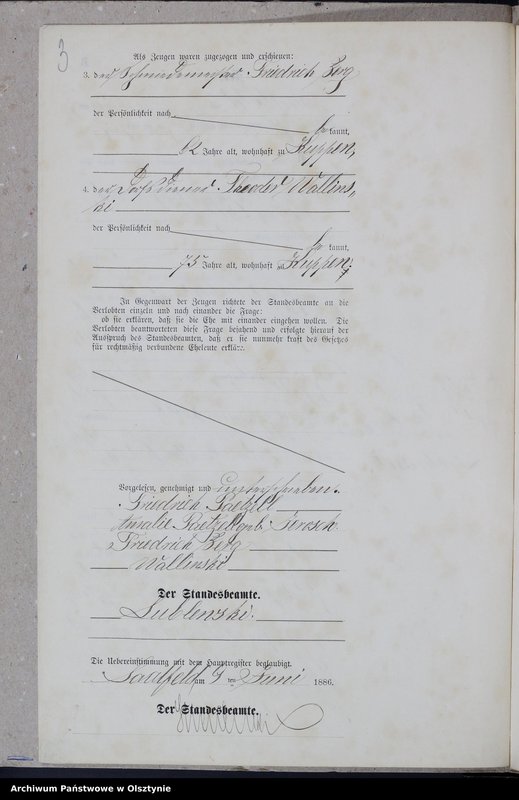 3
Als Zeugen waren zugezogen und erschienen:
3. der Schmiedemeister Friedrich Berg
der Persönlichkeit nach
be kannt,
62 Jahre alt, wohnhaft zu Kuppen,
4. der Theodor Wallins,
ki
der Persönlichkeit nach
be kannt,
75 Jahre alt, wohnhaft zu Kuppen.
In Gegenwart der Zeugen richtete der Standesbeamte an die
Verlobten einzeln und nach einander die Frage:
ob sie erklären, daß sie die Ehe mit einander eingehen wollen. Die
Verlobten beantworteten diese Frage bejahend und erfolgte hierauf der
Ausspruch des Standesbeamten, daß er sie nunmehr kraft des Gesetzes
für rechtmäßig verbundene Eheleute erkläre.
Vorgelesen, genehmigt und unterschrieben.
Friedrich Paetzell
Amalie Paetzell geb. Jerosch
Friedrich Berg
Wallinski
Der Standesbeamte.
Lublenski.
Die Uebereinstimmung mit dem Hauptregister beglaubigt.
Saalfeld am 9 ten Juni 1886.
Der Standesbeamte.
Archiwum Państwowe w Olsztynie